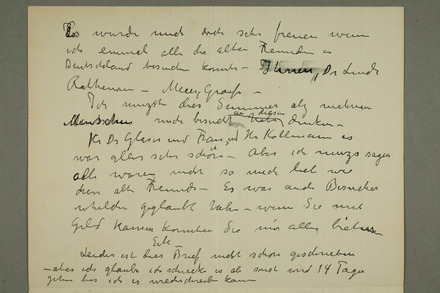 Es wurde mich doch sehr freuen wenn
ich einmal alle die alten Freunde in
Deutschland besuchen konnte – Ihnen, Dr Linde
Rathenau – Meier Graefe –
Ich musste dies Sommer als mehrere
Menschen mich besucht an diesen denken –
Hr Dr Glaser und Frau, und Hr Kollmann es
war alles sehr schön – Aber ich muss sagen
alle waren nicht so mich lieb wie
dien alte Freunde – Es war auch Besucher
geglaubt habe – wenn Sie mit
Geld kamen konnten Sie mir alles
Leider ist dies Brief nicht schon geschrieben
– aber ich glaube ich schicke es ab sonst wird 14 Tage
gehen bis ich es kann